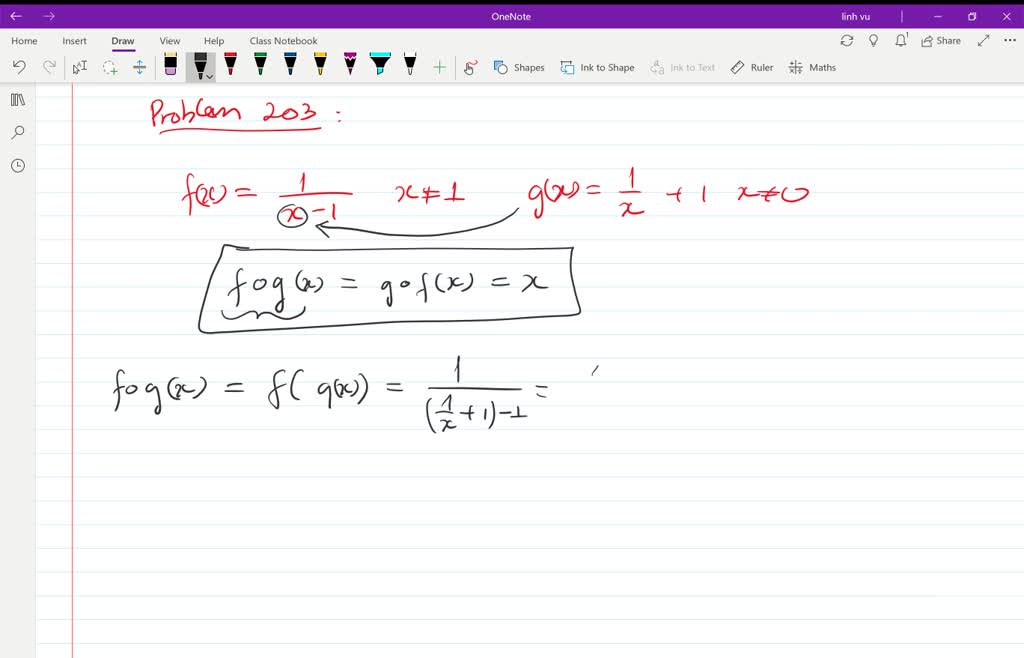 OneNote
linh vu
Home Insert Draw View Help Class Notebook
Share
Shapes Ink to Shape Ink to Text Ruler Maths
Problem 203 :
f(x) = 1/(x-1) x≠1 g(x) = 1/x + 1 x≠0
fog(x) = gof(x) = x
fog(x) = f( g(x)) = 1/((1/x + 1)-1) =